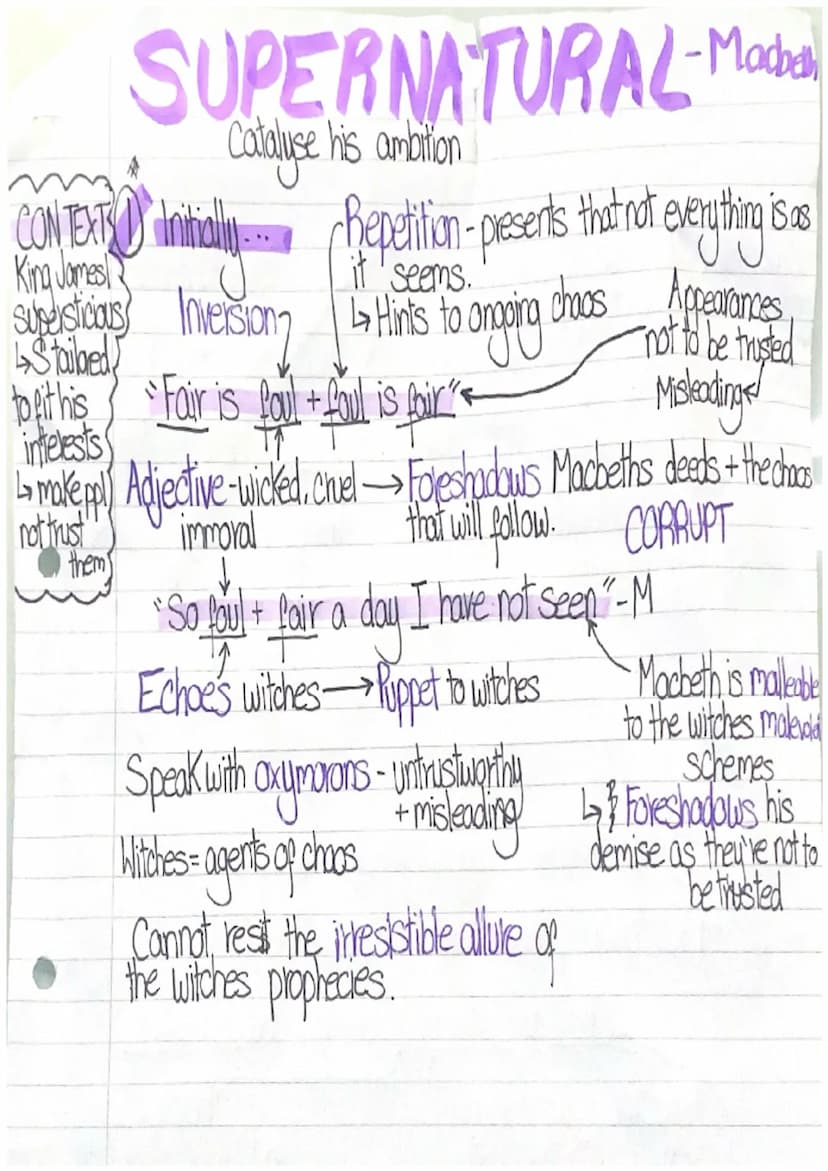 SUPERNATURAL - Macbeth
Catalyse his ambition
CONTEXT
King James
supersticious
↳ Stailored
to fit his
interests
↳ make ppl
not trust
them
① Initially...
Repetition - presents that not everything is as
it seems.
↳ Hints to ongoing chaos
Inversion
Appearances
not to be trusted
Misleading
"Fair is foul + foul is fair"
Adjective - wicked, cruel → Foreshadows Macbeths deeds + the chaos
immoral
that will follow.
CORRUPT
"So foul + fair a day I have not seen" - M
Echoes witches → Puppet to witches
Macbeth is malleable
to the witches
schemes
↳ Foreshadows his
demise as they're not to
be trusted
Speak with oxymorons - untrustworthy
+ misleading
Witches = agents of chaos
Cannot resit the irresistible allure of
the witches prophecies.